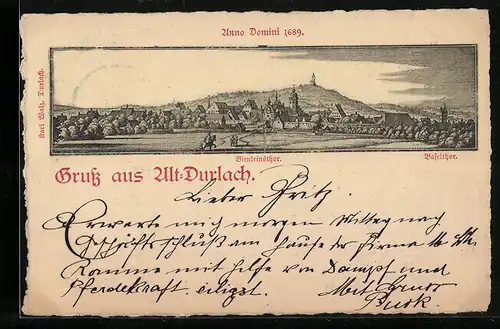 Anno Domini 1689.
Karl Walz, Durlach.
Bienleinsthor.
Baselthor.
Gruß aus Alt-Durlach.
Lieber Fritz.
Erwarte mich morgen Mittag nach
Geschäftsschluß am Hause der Firma
Komme mit Hilfe von Dampf und
Pferdekraft eiligst. Mit Gruss